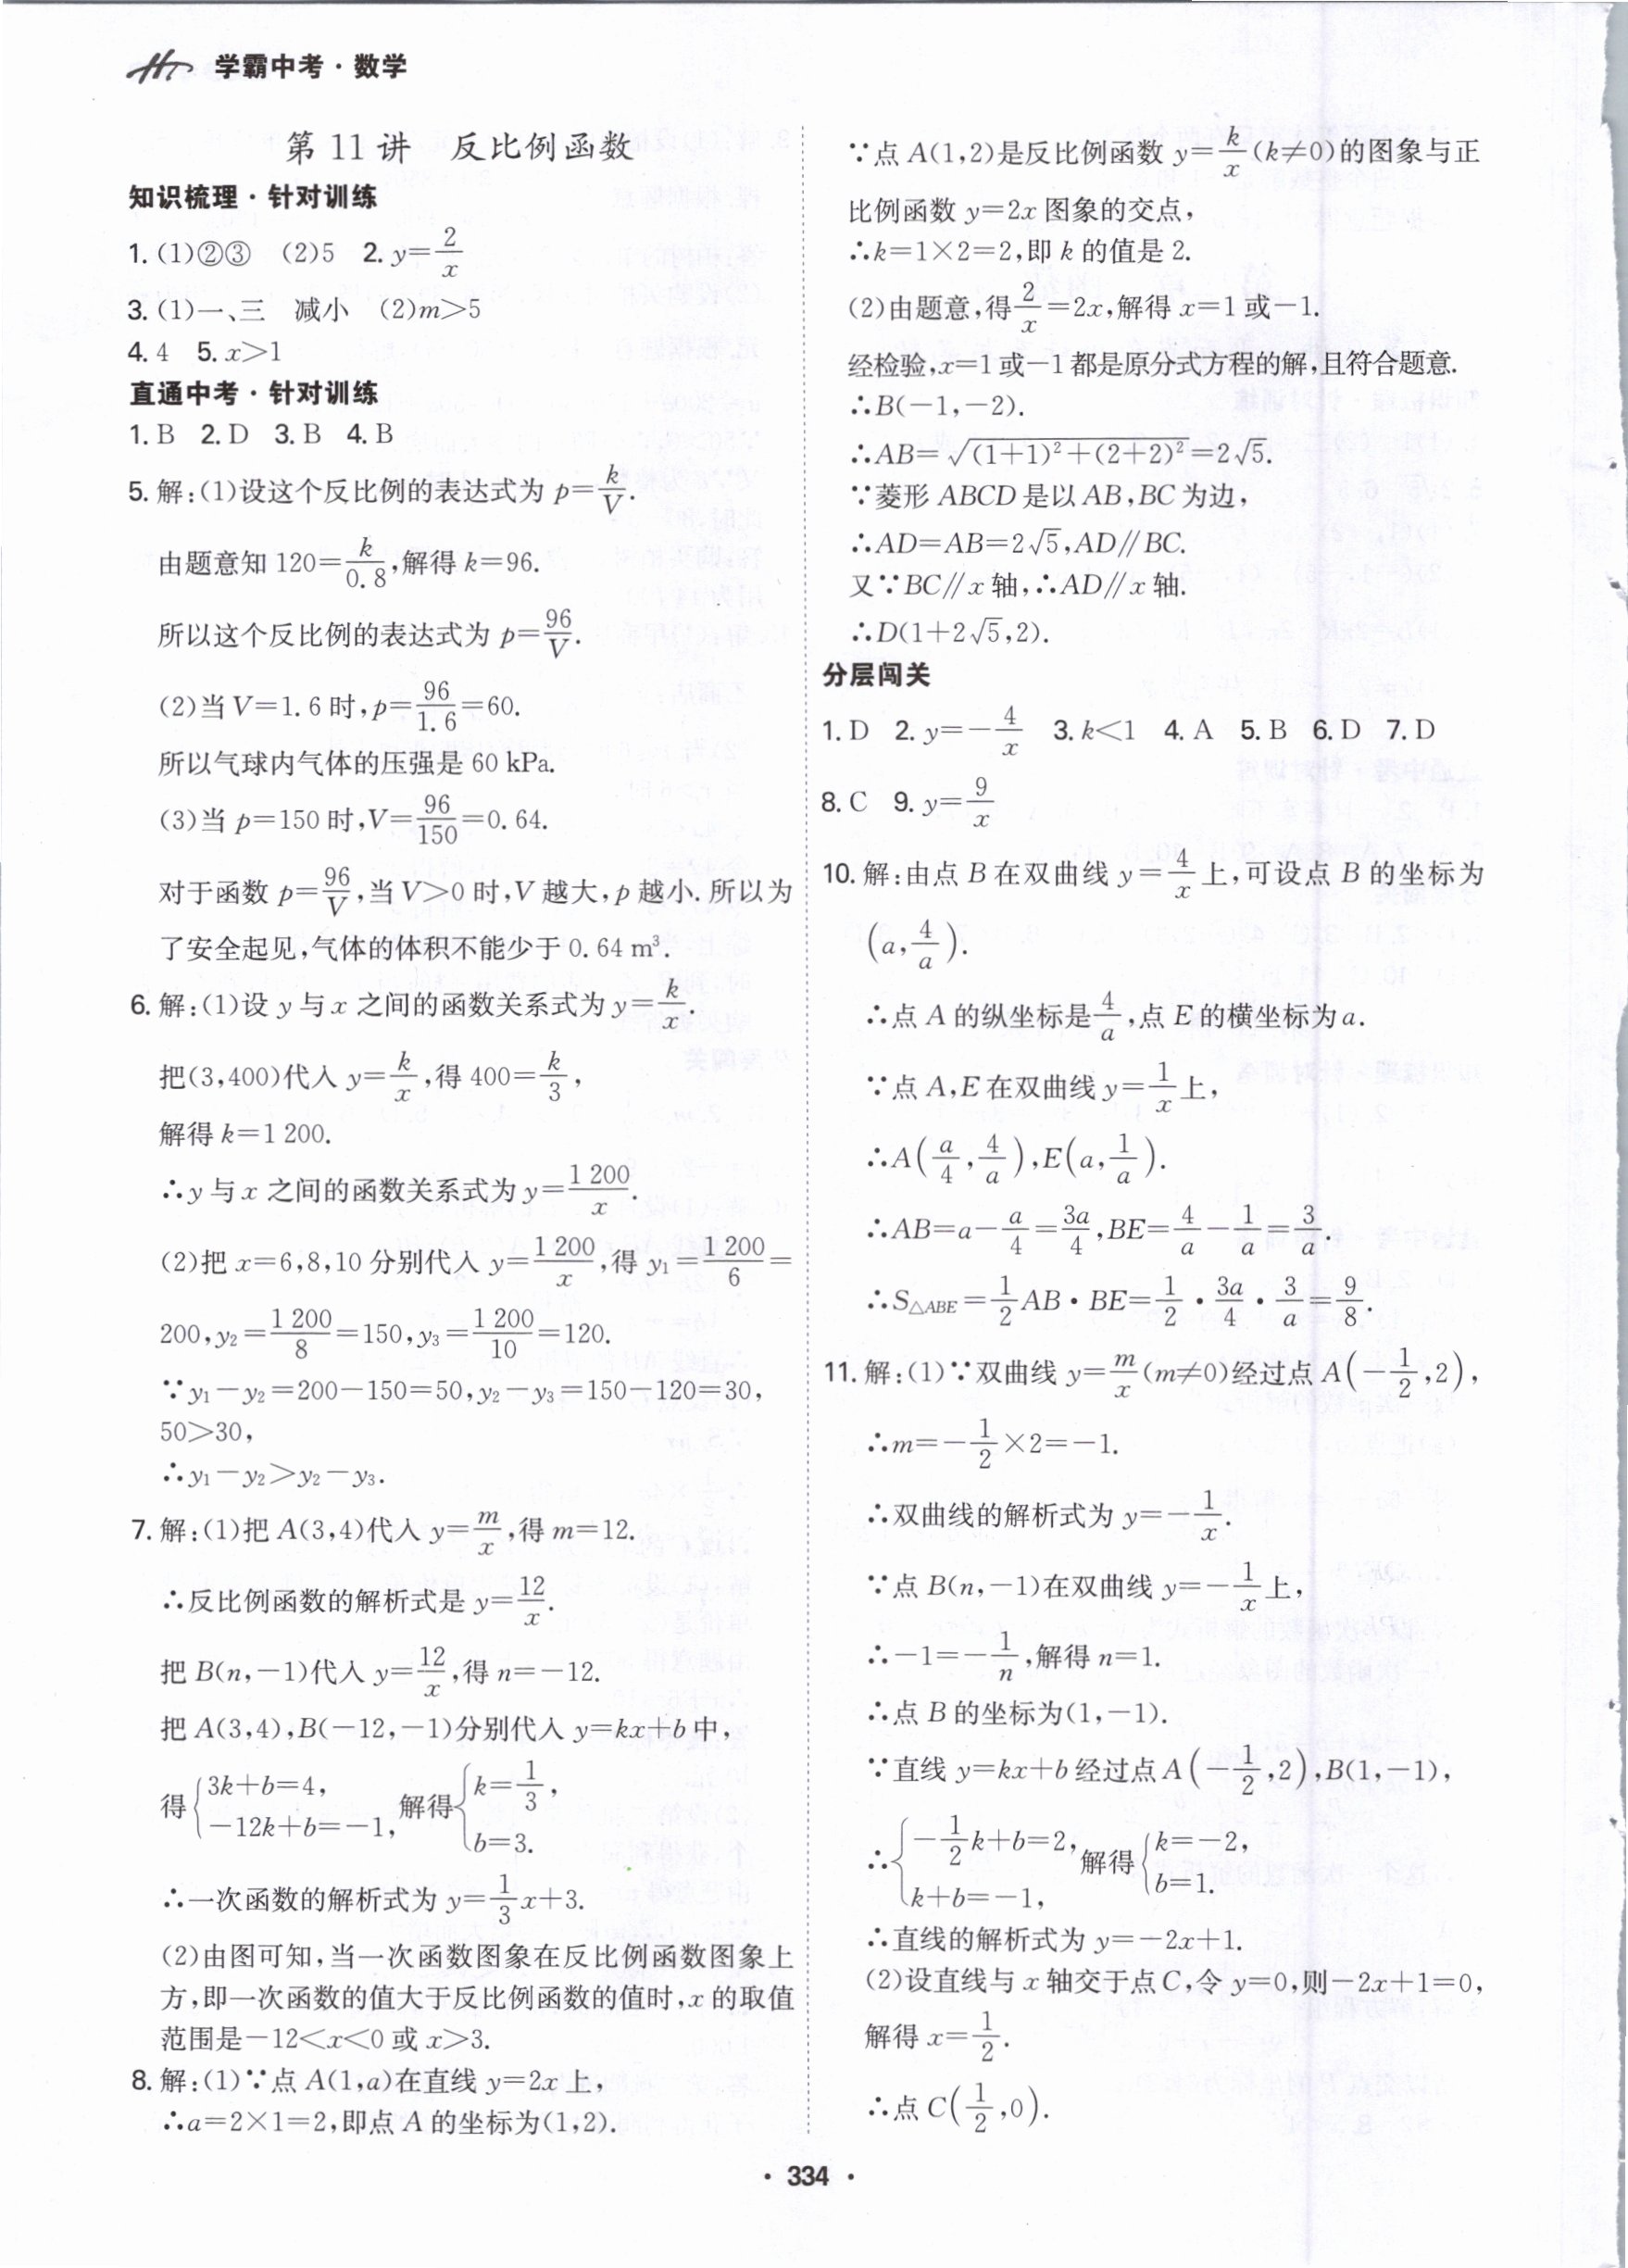 学霸中考·数学
第11讲　反比例函数
知识梳理·针对训练
1. (1)②③　(2)5　2. y=2/x
3. (1)一、三　减小　(2)m>5
4. 4　5. x>1
直通中考·针对训练
1. B　2. D　3. B　4. B
5. 解:(1)设这个反比例的表达式为 p=k/V.
由题意知 120=k/0.8,解得 k=96.
所以这个反比例的表达式为 p=96/V.
(2)当 V=1.6 时,p=96/1.6=60.
所以气球内气体的压强是 60 kPa.
(3)当 p=150 时,V=96/150=0.64.
对于函数 p=96/V,当 V>0 时,V 越大,p 越小.所以为
了安全起见,气体的体积不能少于 0.64 m³.
6. 解:(1)设 y 与 x 之间的函数关系式为 y=k/x.
把(3,400)代入 y=k/x,得 400=k/3,
解得 k=1 200.
∴y 与 x 之间的函数关系式为 y=1 200/x.
(2)把 x=6,8,10 分别代入 y=1 200/x,得 y₁=1 200/6=
200,y₂=1 200/8=150,y₃=1 200/10=120.
∵y₁-y₂=200-150=50,y₂-y₃=150-120=30,
50>30,
∴y₁-y₂>y₂-y₃.
7. 解:(1)把 A(3,4)代入 y=m/x,得 m=12.
∴反比例函数的解析式是 y=12/x.
把 B(n,-1)代入 y=12/x,得 n=-12.
把 A(3,4),B(-12,-1)分别代入 y=kx+b 中,
得{3k+b=4, -12k+b=-1, 解得{k=1/3, b=3.
∴一次函数的解析式为 y=1/3x+3.
(2)由图可知,当一次函数图象在反比例函数图象上
方,即一次函数的值大于反比例函数的值时,x 的取值
范围是-12<x<0 或 x>3.
8. 解:(1)∵点 A(1,a)在直线 y=2x 上,
∴a=2×1=2,即点 A 的坐标为(1,2).
∵点 A(1,2)是反比例函数 y=k/x(k≠0)的图象与正
比例函数 y=2x 图象的交点,
∴k=1×2=2,即 k 的值是 2.
(2)由题意,得2/x=2x,解得 x=1 或-1.
经检验,x=1 或-1 都是原分式方程的解,且符合题意.
∴B(-1,-2).
∴AB=√((1+1)²+(2+2)²)=2√5.
∵菱形 ABCD 是以 AB,BC 为边,
∴AD=AB=2√5,AD∥BC.
又∵BC∥x 轴,∴AD∥x 轴.
∴D(1+2√5,2).
分层闯关
1. D　2. y=-4/x　3. k<1　4. A　5. B　6. D　7. D
8. C　9. y=9/x
10. 解:由点 B 在双曲线 y=4/x上,可设点 B 的坐标为
(a,4/a).
∴点 A 的纵坐标是4/a,点 E 的横坐标为 a.
∵点 A,E 在双曲线 y=1/x上,
∴A(a/4,4/a),E(a,1/a).
∴AB=a-a/4=3a/4,BE=4/a-1/a=3/a.
∴S△ABE=1/2AB·BE=1/2·3a/4·3/a=9/8.
11. 解:(1)∵双曲线 y=m/x(m≠0)经过点 A(-1/2,2),
∴m=-1/2×2=-1.
∴双曲线的解析式为 y=-1/x.
∵点 B(n,-1)在双曲线 y=-1/x上,
∴-1=-1/n,解得 n=1.
∴点 B 的坐标为(1,-1).
∵直线 y=kx+b 经过点 A(-1/2,2),B(1,-1),
∴{-1/2k+b=2, k+b=-1, 解得{k=-2, b=1.
∴直线的解析式为 y=-2x+1.
(2)设直线与 x 轴交于点 C,令 y=0,则-2x+1=0,
解得 x=1/2.
∴点 C(1/2,0).
· 334 ·